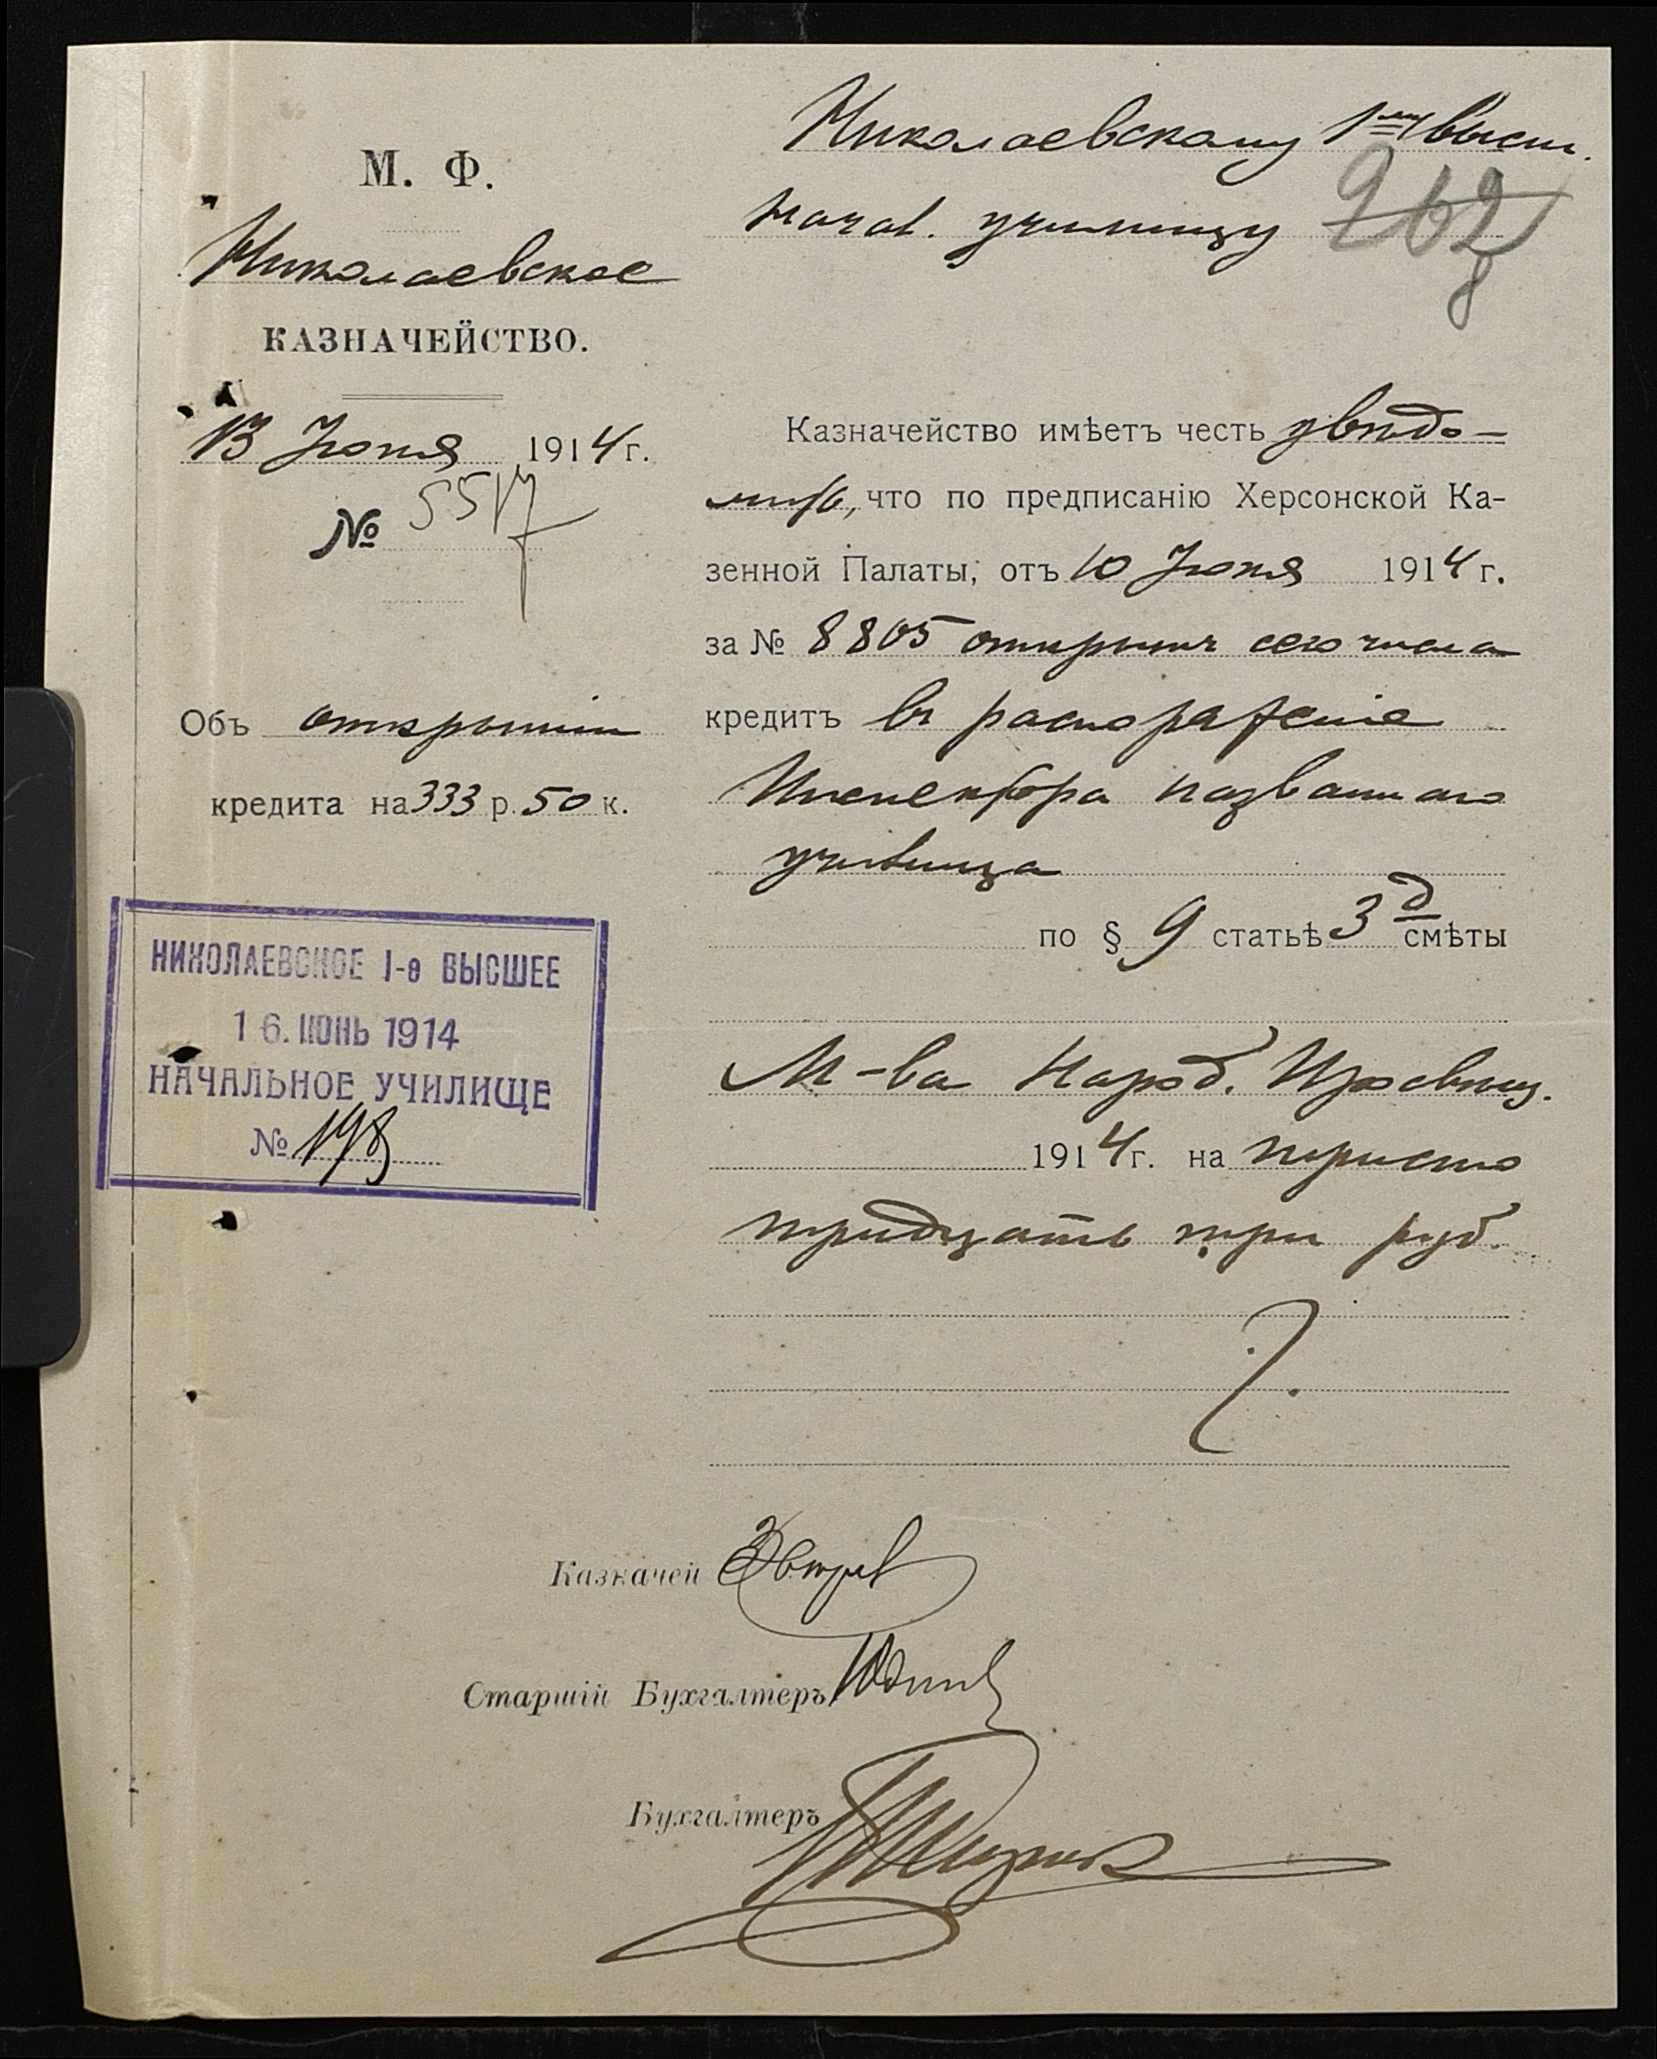 Николаевскому 1му высш.
начал. училищу
М. Ф.
Николаевское
КАЗНАЧЕЙСТВО.
13 Июня 1914 г.
№ 5517
Объ открытіи
кредита на 333 р. 50 к.
НИКОЛАЕВСКОЕ 1-е ВЫСШЕЕ
16. ИЮНЬ 1914
НАЧАЛЬНОЕ УЧИЛИЩЕ
№ 198
Казначейство имѣетъ честь увѣдо-
мить, что по предписанію Херсонской Ка-
зенной Палаты, отъ 10 Июня 1914 г.
за № 8805 открытъ сего числа
кредитъ въ распоряженіе
Инспектора названнаго
училища
по § 9 статьѣ 3 д смѣты
М-ва Народ. Просвѣщ.
1914 г. на триста
тридцать три руб.
Казначей
Старшій Бухгалтеръ
Бухгалтеръ